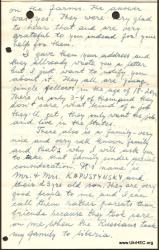 on the farms. He answer
was yes! They were very glad
to hear that and are very
grateful to you indeed for your
help for them.
I gave them your address and
they allready wrote you a letter
but I just want to notify you
about it. They are nice young
single fellows in the age of 18-20
There is only 3 of them and they
don't care what kind of a job
they'll get, they only want the job
and live in the States.
There also is a family - very
nice and very well known family
and that's why I will ask you
to take that family under special
consideration. It's name is
Mr. & Mrs. KAPUSTYNSKY and
their 23 yrs old son. They are very
good friends to me and I can
call them rather parents than
friends because they took care
on me, when the Russians took
my family to Siberia.
www.UkrHEC.org